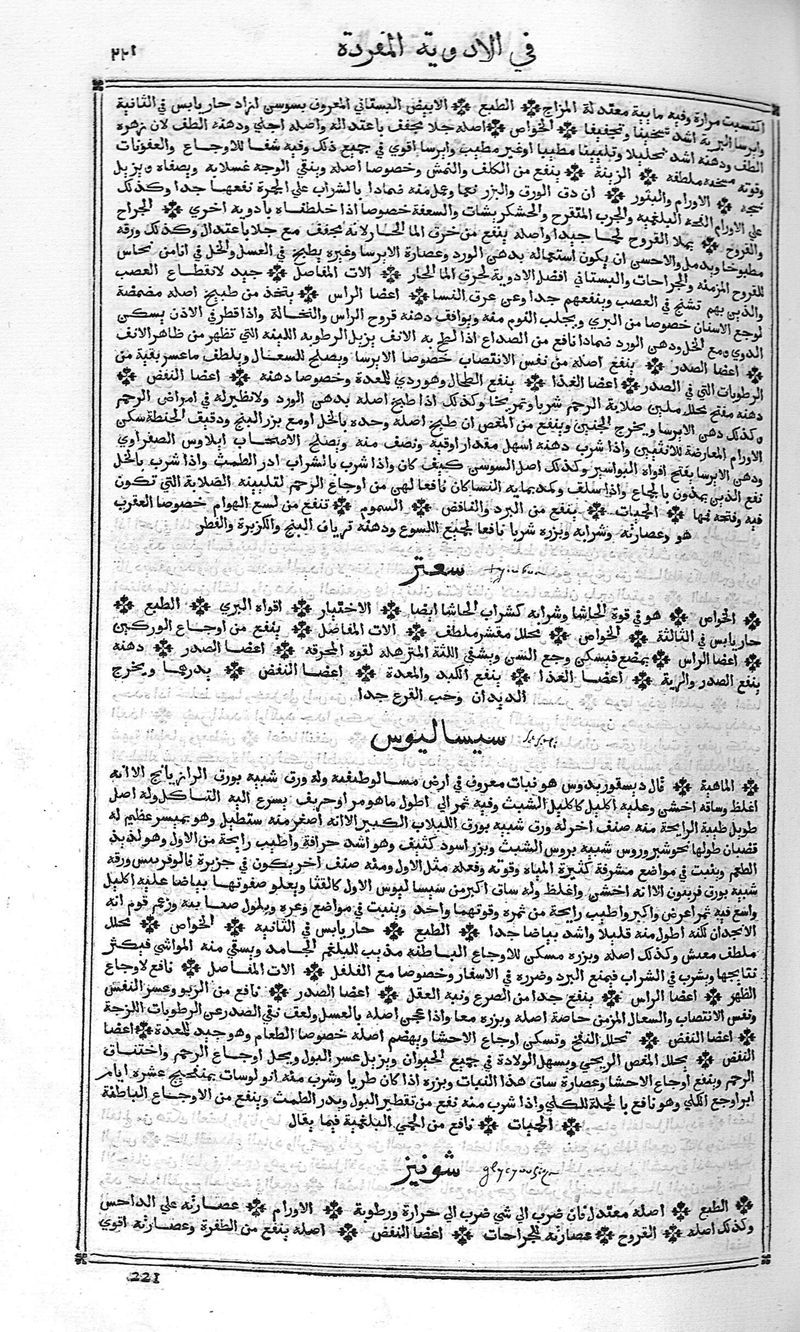 في الادوية المفردة ٢٢١
اكتسبت مرارة وفيه مايية معتدلة المزاج الطبع الابيض البستاني المعروف بسوسي ازاد حار يابس في الثانية
وايرسا البرية اشد تسخينا وتجفيفا الخواص اصله جلا مجفف باعتدال واصله اجلي ودهنه الطف لان زهره
الطف ودهنه اشد تحليلا وتليينا مطيبا او غير مطيب وايرسا اقوي في جميع ذلك وفيه شفا للاوجاع والعفونات
وقوته مسخنه ملطفه الزينة ينفع من الكلف والنمش وخصوصا اصله وينقي الوجه غسلا به وبصفاه ويزيل
تشنجه الاورام والبثور ان دق الورق والبزر نعما وعمل منه ضمادا بالشراب علي الحمرة نفعها جدا وكذلك
علي الاورام الفجه البلغميه والجرب المتقرح والخشكريشات والسعفة خصوصا اذا خلط بادوية اخري الجراح
والقروح يملا القروح لحما جيدا واصله ينفع من حرق الما الحار لانه مجفف مع جلا باعتدال وكذلك ورقه
مطبوخا ويدمل والاحسن ان يكون استعماله بدهن الورد وعصارة الايرسا وغيره يطبخ في العسل والخل في انا من نحاس
للقروح المزمنه والجراحات والبستاني افضل الادوية لحرق الما الحار الات المفاصل جيد لانقطاع العصب
والذين بهم تشنج في العصب وينفعهم جدا وعن عرق النسا اعضا الراس يتخذ من طبيخ اصله مضمضة
لوجع الاسنان خصوصا من البري ويجلب النوم منه ويوافق دهنه قروح الراس والنخالة واذا قطر في الاذن يسكن
الدوي ومع الخل ودهن الورد ضمادا نافع من الصداع اذا لطخ به الانف يزيل الرطوبه اللينه التي تظهر من ظاهر الانف
اعضا الصدر ينفع اصله من نفس الانتصاب خصوصا الايرسا ويصلح للسعال ويلطف ما عسر بقية من
الرطوبات التي في الصدر اعضا الغذا ينفع الطحال وهو ردي للمعدة وخصوصا دهنه اعضا النفض
دهنه مفتح محلل ملين صلابة الرحم شربا وتمريخا وكذلك اذا طبخ اصله بدهن الورد ولا نظير له في امراض الرحم
وكذلك دهن الايرسا ويخرج الجنين وينفع من المغص ان طبخ اصله وحده بالخل او مع بزر البنج ودقيق الحنطة سكن
الاورام العارضة للانثيين واذا شرب دهنه اسهل مقدار اوقيه ونصف منه ويصلح لاصحاب ايلاوس الصفراوي
ودهن الايرسا يفتح افواه البواسير وكذلك اصل السوسن كيف كان واذا شرب بالشراب ادر الطمث واذا شرب بالخل
نفع الذين يمذون بالجماع واذا سلق وكمد بمايه النسا كان نافعا لهن من اوجاع الرحم لتليينه الصلابة التي تكون
فيه وفتحه فمها الحميات ينفع من البرد والنافض السموم تنفع من لسع الهوام خصوصا العقرب
هو وعصارته وشرابه وبزره شربا نافعا لجميع اللسوع ودهنه ترياق البنج والكزبرة والفطر
سعتر
الخواص هو في قوة الحاشا وشرابه كشراب الحاشا ايضا الاختيار اقواه البري الطبع
حار يابس في الثالثة الخواص محلل مفشش ملطف الات المفاصل ينفع من اوجاع الوركين
اعضا الراس يمضغ فيسكن وجع السن ويشفي اللثة المترهله لقوه المحرقه اعضا الصدر دهنه
ينفع الصدر والرية اعضا الغذا ينفع الكبد والمعدة اعضا النفض يدرهما ويخرج
الديدان وحب القرع جدا
سيساليوس
الماهية قال ديسقوريدوس هو نبات معروف في ارض مساليوطيقيه وله ورق شبيه بورق الرازيانج الا انه
اغلظ وساقه اخشن وعليه اكليل كاكليل الشبث وفيه ثمر الي اطول ما هو مر او حريف يسرع اليه التاكل وله اصل
طويل طيبة الرايحة منه صنف اخر له ورق شبيه بورق اللبلاب الكبير الا انه اصغر منه مستطيل وهو تمنيس عظيم له
قضبان طولها نحو شبر وروس شبيه بروس الشبث وبزر اسود كثيف وهو اشد حرافة واطيب رايحة من الاول وهو لذيذ
الطعم وينبت في مواضع مشرفة كثيرة المياه وقوته وفعله مثل الاول ومنه صنف اخر يكون في جزيرة فالوفرنيس ورقه
شبيه بورق فريفون الا انه اخشن واغلظ وله ساق اكبر من سيساليوس الاول كالقثا ويعلو صفوتها بياضا عليه اكليل
واسع فيه ثمر اعرض واكبر واطيب رايحة من ثمره وقوتهما واحد وينبت في مواضع وعره ويلول صعابيه وزعم قوم انه
الانجدان لكنه اطول منه قليلا واشد بياضا جدا الطبع حار يابس في الثانية الخواص محلل
ملطف مفش وكذلك اصله وبزره مسكن للاوجاع الباطنه مذيب للبلغم الجامد ويسقي منه المواشي فيكثر
نتاجها ويشرب في الشراب فيمنع البرد وضرره في الاسفار وخصوصا مع الفلفل الات المفاصل نافع لاوجاع
الظهر اعضا الراس ينفع جدا من الصرع ونبه العقل اعضا الصدر نافع من الربو وعسر النفس
ونفس الانتصاب والسعال المزمن خاصة اصله وبزره معا واذا عجن اصله بالعسل ولعق نقي الصدر عن الرطوبات اللزجة
اعضا النفض تحلل النفخ وتسكن اوجاع الاحشا ويهضم اصله خصوصا الطعام وهو جيد للمعدة اعضا
النفض يحلل المغص الريحي ويسهل الولادة في جميع الحيوان ويزيل عسر البول ويحل اوجاع الرحم واختناق
الرحم وينفع اوجاع الاحشا وعصارة ساق هذا النبات وبزره اذا كان طريا وشرب منه اثولوسات بميفختج عشره ايام
ابرا وجع الكلي وهو نافع بالجملة للكلي واذا شرب منه نفع من تقطير البول ويدر الطمث وينفع من الاوجاع الباطنة
الحميات نافع من الحمي البلغمية فيما يقال
شونيز
الطبع اصله معتدل فان ضرب الي شي ضرب الي حرارة ورطوبة الاورام عصارته علي الداحس
وكذلك اصله القروح عصارته للجراحات اعضا النفض اصله ينفع من الظفرة وعصارته اقوي
221